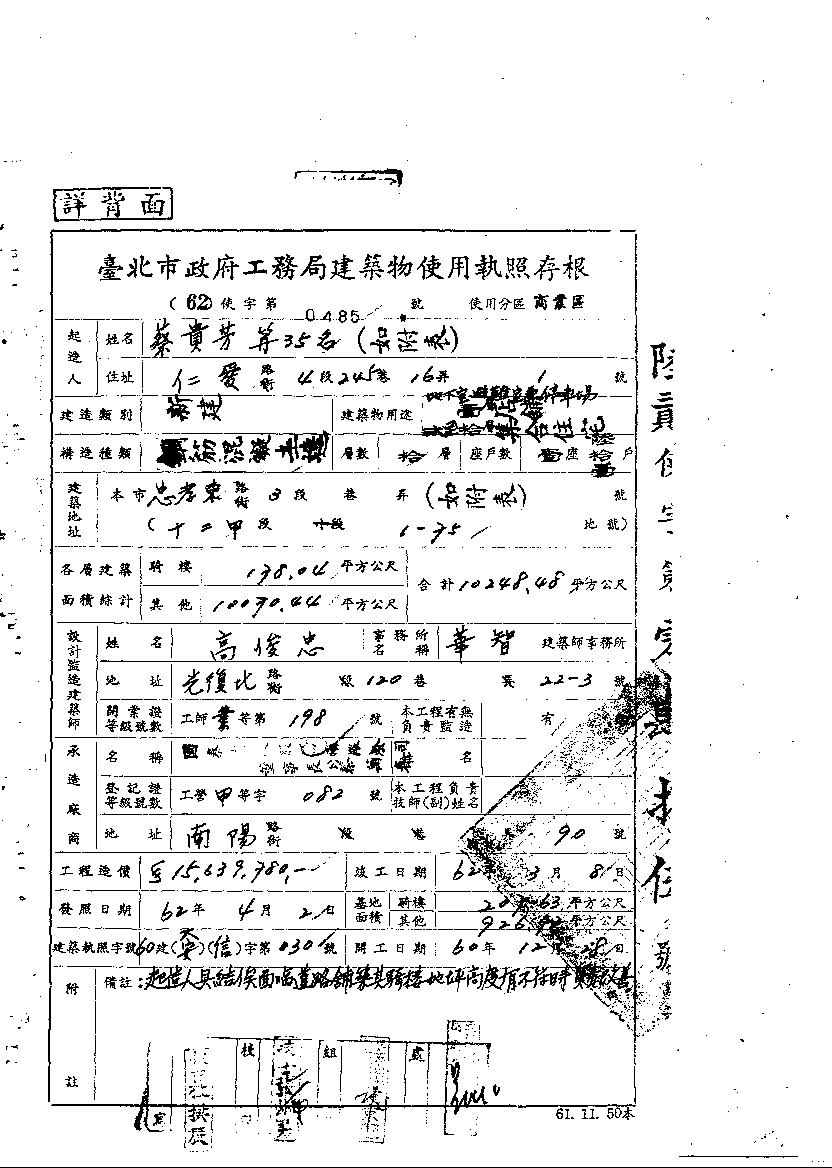 詳背面
臺北市政府工務局建築物使用執照存根
(62)使字第0485號 使用分區 商業區
起造人 姓名 蔡貴芳等35名(如附表)
住址 仁愛路街4段245巷16弄1號
建造類別 新建 建築物用途 集合住宅
構造種類 鋼筋混凝土造 層數 拾層 座戶數 壹座 戶
建築地址 本市忠孝東路街3段巷弄(如附表)號
(十二甲段 1-75 地號)
各層建築面積綜計 騎樓 178.04平方公尺 合計10248.48平方公尺
其他 10070.44平方公尺
設計監造建築師 姓名 高俊忠 事務所名稱 華智 建築師事務所
地址 光復北路街段120巷 22-3號
開業證等級號數 工師業等第198號 本工程有無負責監造 有
承造廠商 名稱 姓名
登記證等級號數 工營甲等字082號 本工程負責技師(副)姓名
地址 南陽路街段巷 90號
工程造價 15,639,780,- 竣工日期 62年3月8日
發照日期 62年4月2日 基地面積 騎樓 平方公尺
其他 平方公尺
建築執照字號60建(信)字第0301號 開工日期 60年12月28日
附註 備註:起造人具結俟面臨道路舖築其騎樓地坪高度有不符時負責改善
校 組 處
61.11.50本